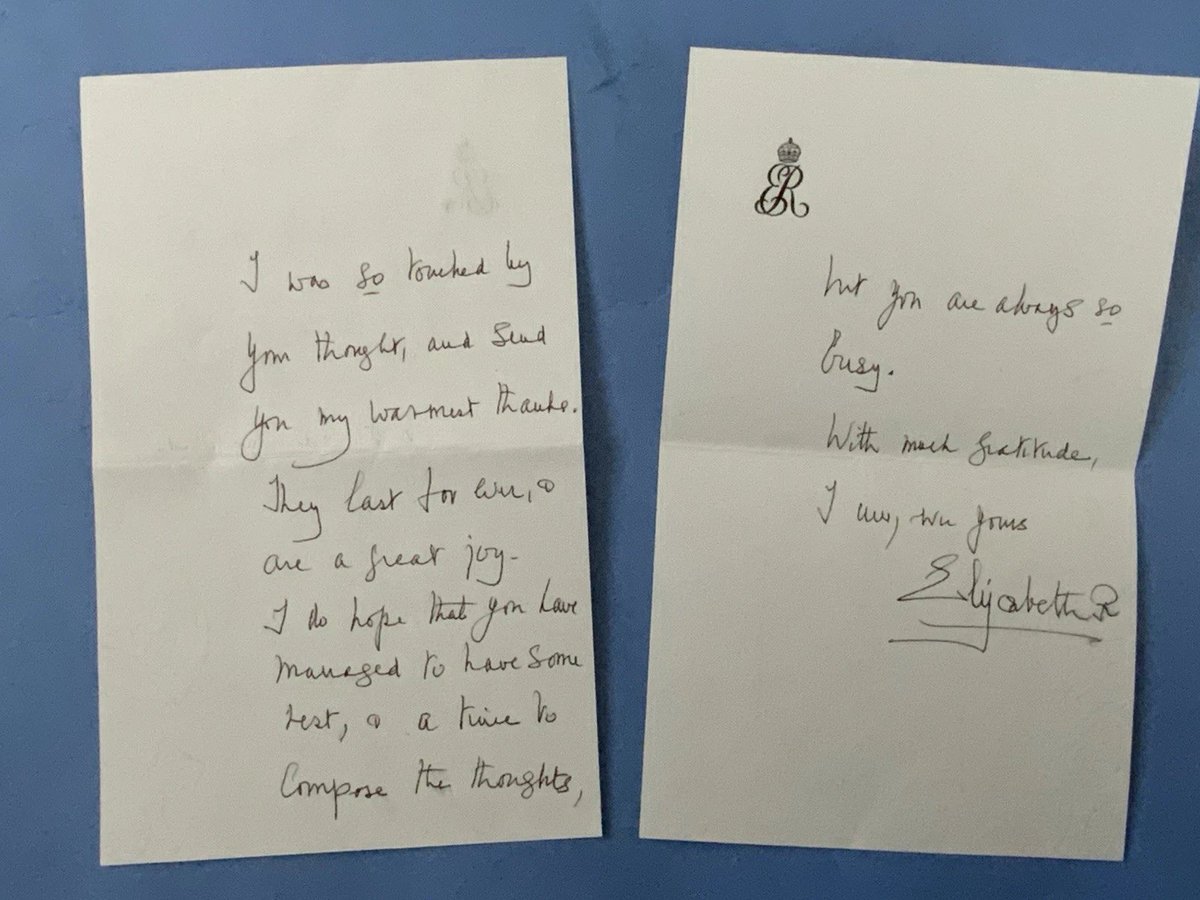 I was so touched by
your thought, and send
you my warmest thanks.
They last for ever, &
are a great joy.
I do hope that you have
managed to have some
rest, & a time to
compose the thoughts,
ER
but you are always so
busy.
With much gratitude,
I am, ever yours
Elizabeth R